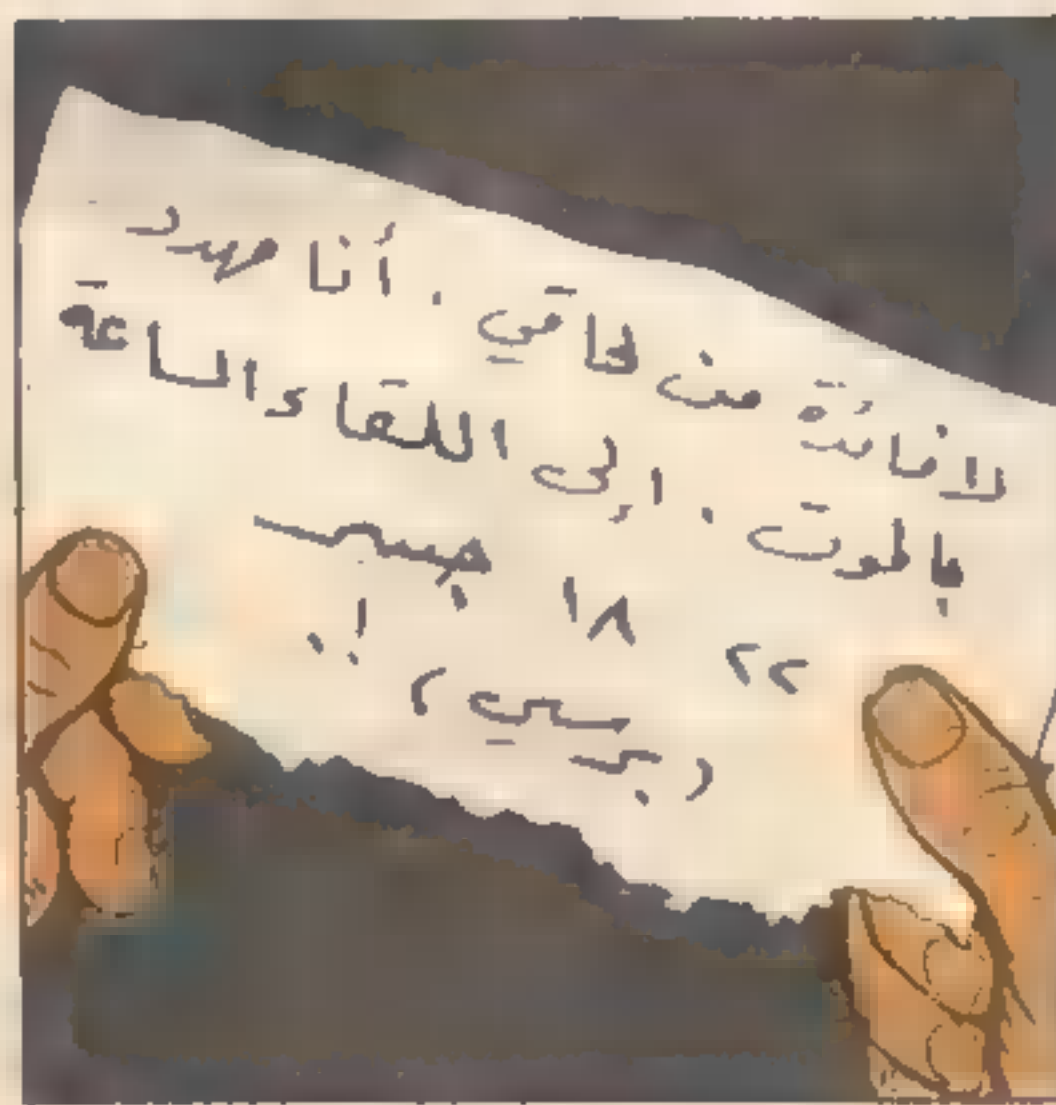 لا فائدة من لحاقي . أنا مهدد
بالموت . إلى اللقاء الساعة
٢٢ ١٨